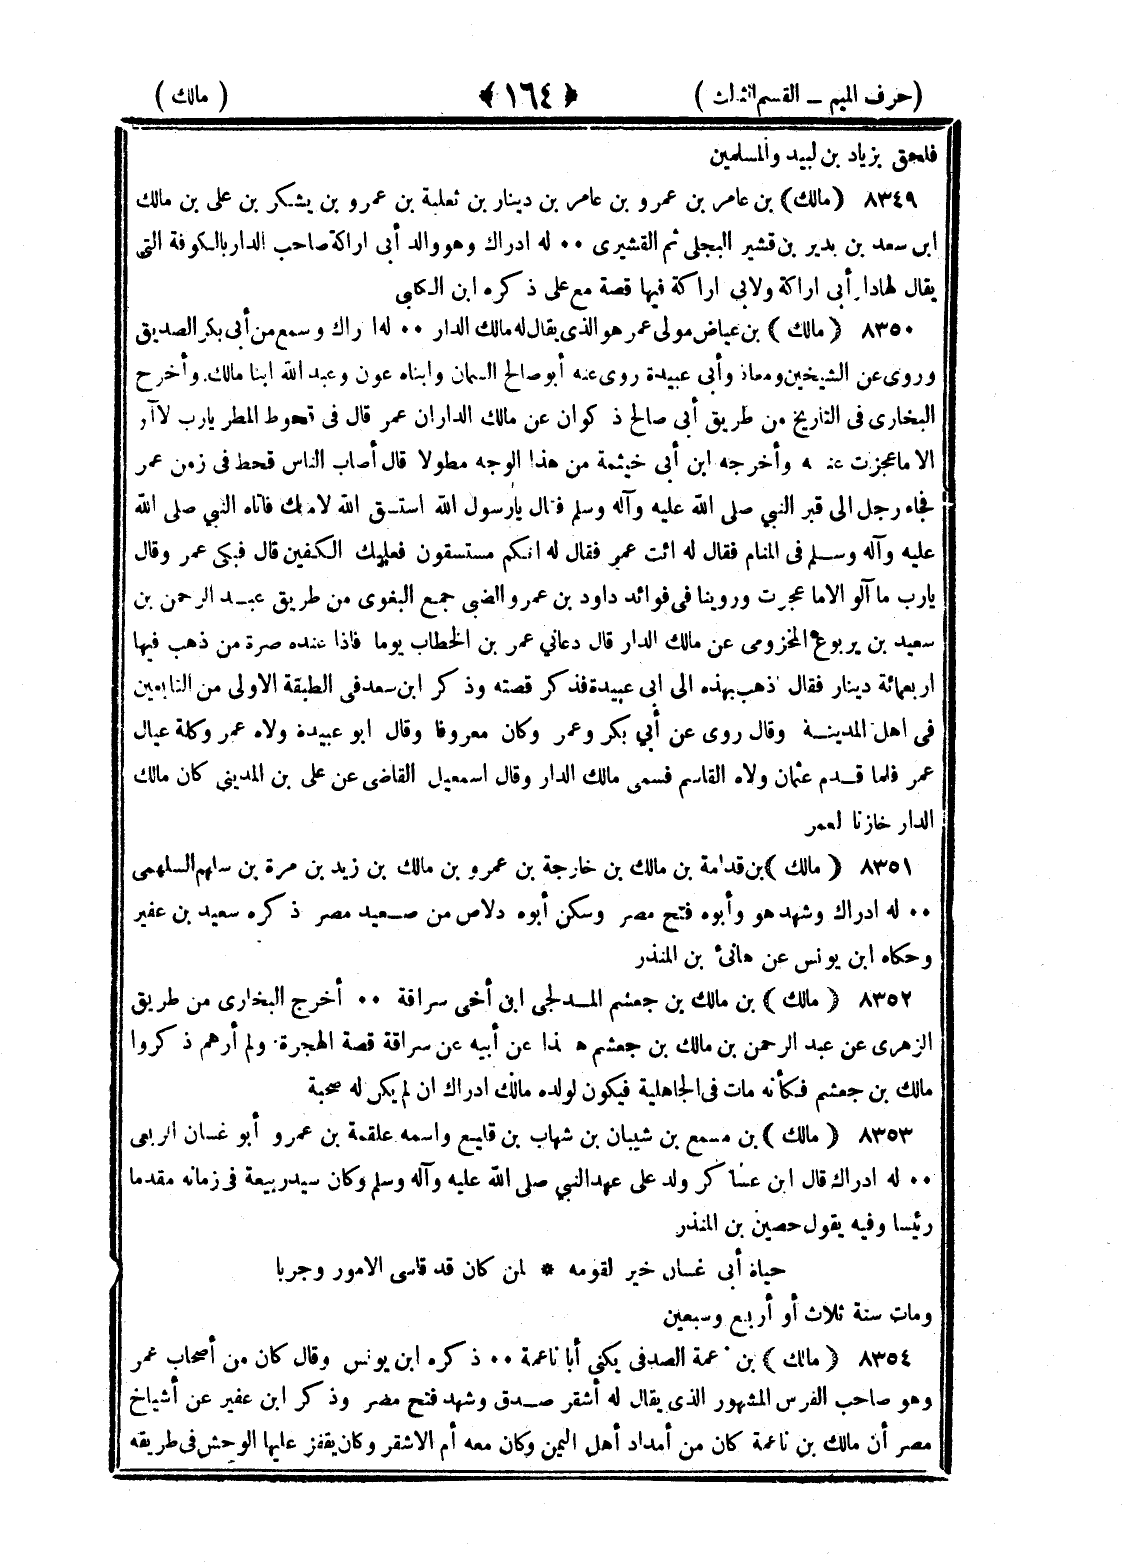 (حرف الميم ــ القسم الثالث) ﴿١٦٤﴾ (مالك)
فلحق بزياد بن لبيد والمسلمين
٨٣٤٩ (مالك) بن عامر بن عمرو بن عامر بن دينار بن ثعلبة بن عمرو بن يشكر بن على بن مالك
ابن سعد بن بدير بن قشير البجلى ثم القشيرى ٠٠ له ادراك وهو والد أبى اراكة صاحب الدار بالكوفة التى
يقال لها دار أبى اراكة ولابى اراكة فيها قصة مع على ذكره ابن الكلبى
٨٣٥٠ (مالك) بن عياض مولى عمر هو الذى يقال له مالك الدار ٠٠ له ادراك وسمع من أبى بكر الصديق
وروى عن الشيخين ومعاذ وأبى عبيدة روى عنه أبو صالح السمان وابناه عون وعبد الله ابنا مالك وأخرج
البخارى فى التاريخ من طريق أبى صالح ذكوان عن مالك الدار ان عمر قال فى قحوط المطر يارب لا آلو
الا ما عجزت عنه وأخرجه ابن أبى خيثمة من هذا الوجه مطولا قال أصاب الناس قحط فى زمن عمر
فجاء رجل الى قبر النبي صلى الله عليه وآله وسلم فقال يارسول الله استسق الله لامتك فاتاه النبي صلى الله
عليه وآله وسلم فى المنام فقال له ائت عمر فقال له انكم مستسقون فعليك الكفين قال فبكى عمر وقال
يارب ما آلو الا ما عجزت وروينا فى فوائد داود بن عمرو الضبى جمع البغوى من طريق عبد الرحمن بن
سعيد بن يربوع المخزومى عن مالك الدار قال دعاني عمر بن الخطاب يوما فاذا عنده صرة من ذهب فيها
اربعمائة دينار فقال اذهب بهذه الى ابى عبيدة فذكر قصته وذكر ابن سعد فى الطبقة الاولى من التابعين
فى اهل المدينة وقال روى عن أبي بكر وعمر وكان معروفا وقال ابو عبيدة ولاه عمر وكلة عيال
عمر فلما قدم عثمان ولاه القاسم فسمى مالك الدار وقال اسمعيل القاضى عن على بن المديني كان مالك
الدار خازنا لعمر
٨٣٥١ (مالك) بن قدامة بن مالك بن خارجة بن عمرو بن مالك بن زيد بن مرة بن سلهم السلهمى
٠٠ له ادراك وشهد هو وأبوه فتح مصر وسكن أبوه دلاص من صعيد مصر ذكره سعيد بن عفير
وحكاه ابن يونس عن هانئ بن المنذر
٨٣٥٢ (مالك) بن مالك بن جعشم المدلجى ابن أخى سراقة ٠٠ أخرج البخارى من طريق
الزهرى عن عبد الرحمن بن مالك بن جعشم هذا عن أبيه عن سراقة قصة الهجرة ولم أرهم ذكروا
مالك بن جعشم فكأنه مات فى الجاهلية فيكون لولده مالك ادراك ان لم يكن له صحبة
٨٣٥٣ (مالك) بن مسمع بن شيبان بن شهاب بن قليع واسمه علقمة بن عمرو أبو غسان الربعى
٠٠ له ادراك قال ابن عساكر ولد على عهد النبي صلى الله عليه وآله وسلم وكان سيد ربيعة فى زمانه مقدما
رئيسا وفيه يقول حصين بن المنذر
حياة أبى غسان خير لقومه * لمن كان قد قاسى الامور وجربا
ومات سنة ثلاث أو أربع وسبعين
٨٣٥٤ (مالك) بن ناعمة الصدفى يكنى أبا ناعمة ٠٠ ذكره ابن يونس وقال كان من أصحاب عمر
وهو صاحب الفرس المشهور الذى يقال له أشقر صدق وشهد فتح مصر وذكر ابن عفير عن أشياخ
مصر أن مالك بن ناعمة كان من أمداد أهل اليمن وكان معه أم الاشقر وكان يقفز عليها الوحش فى طريقه